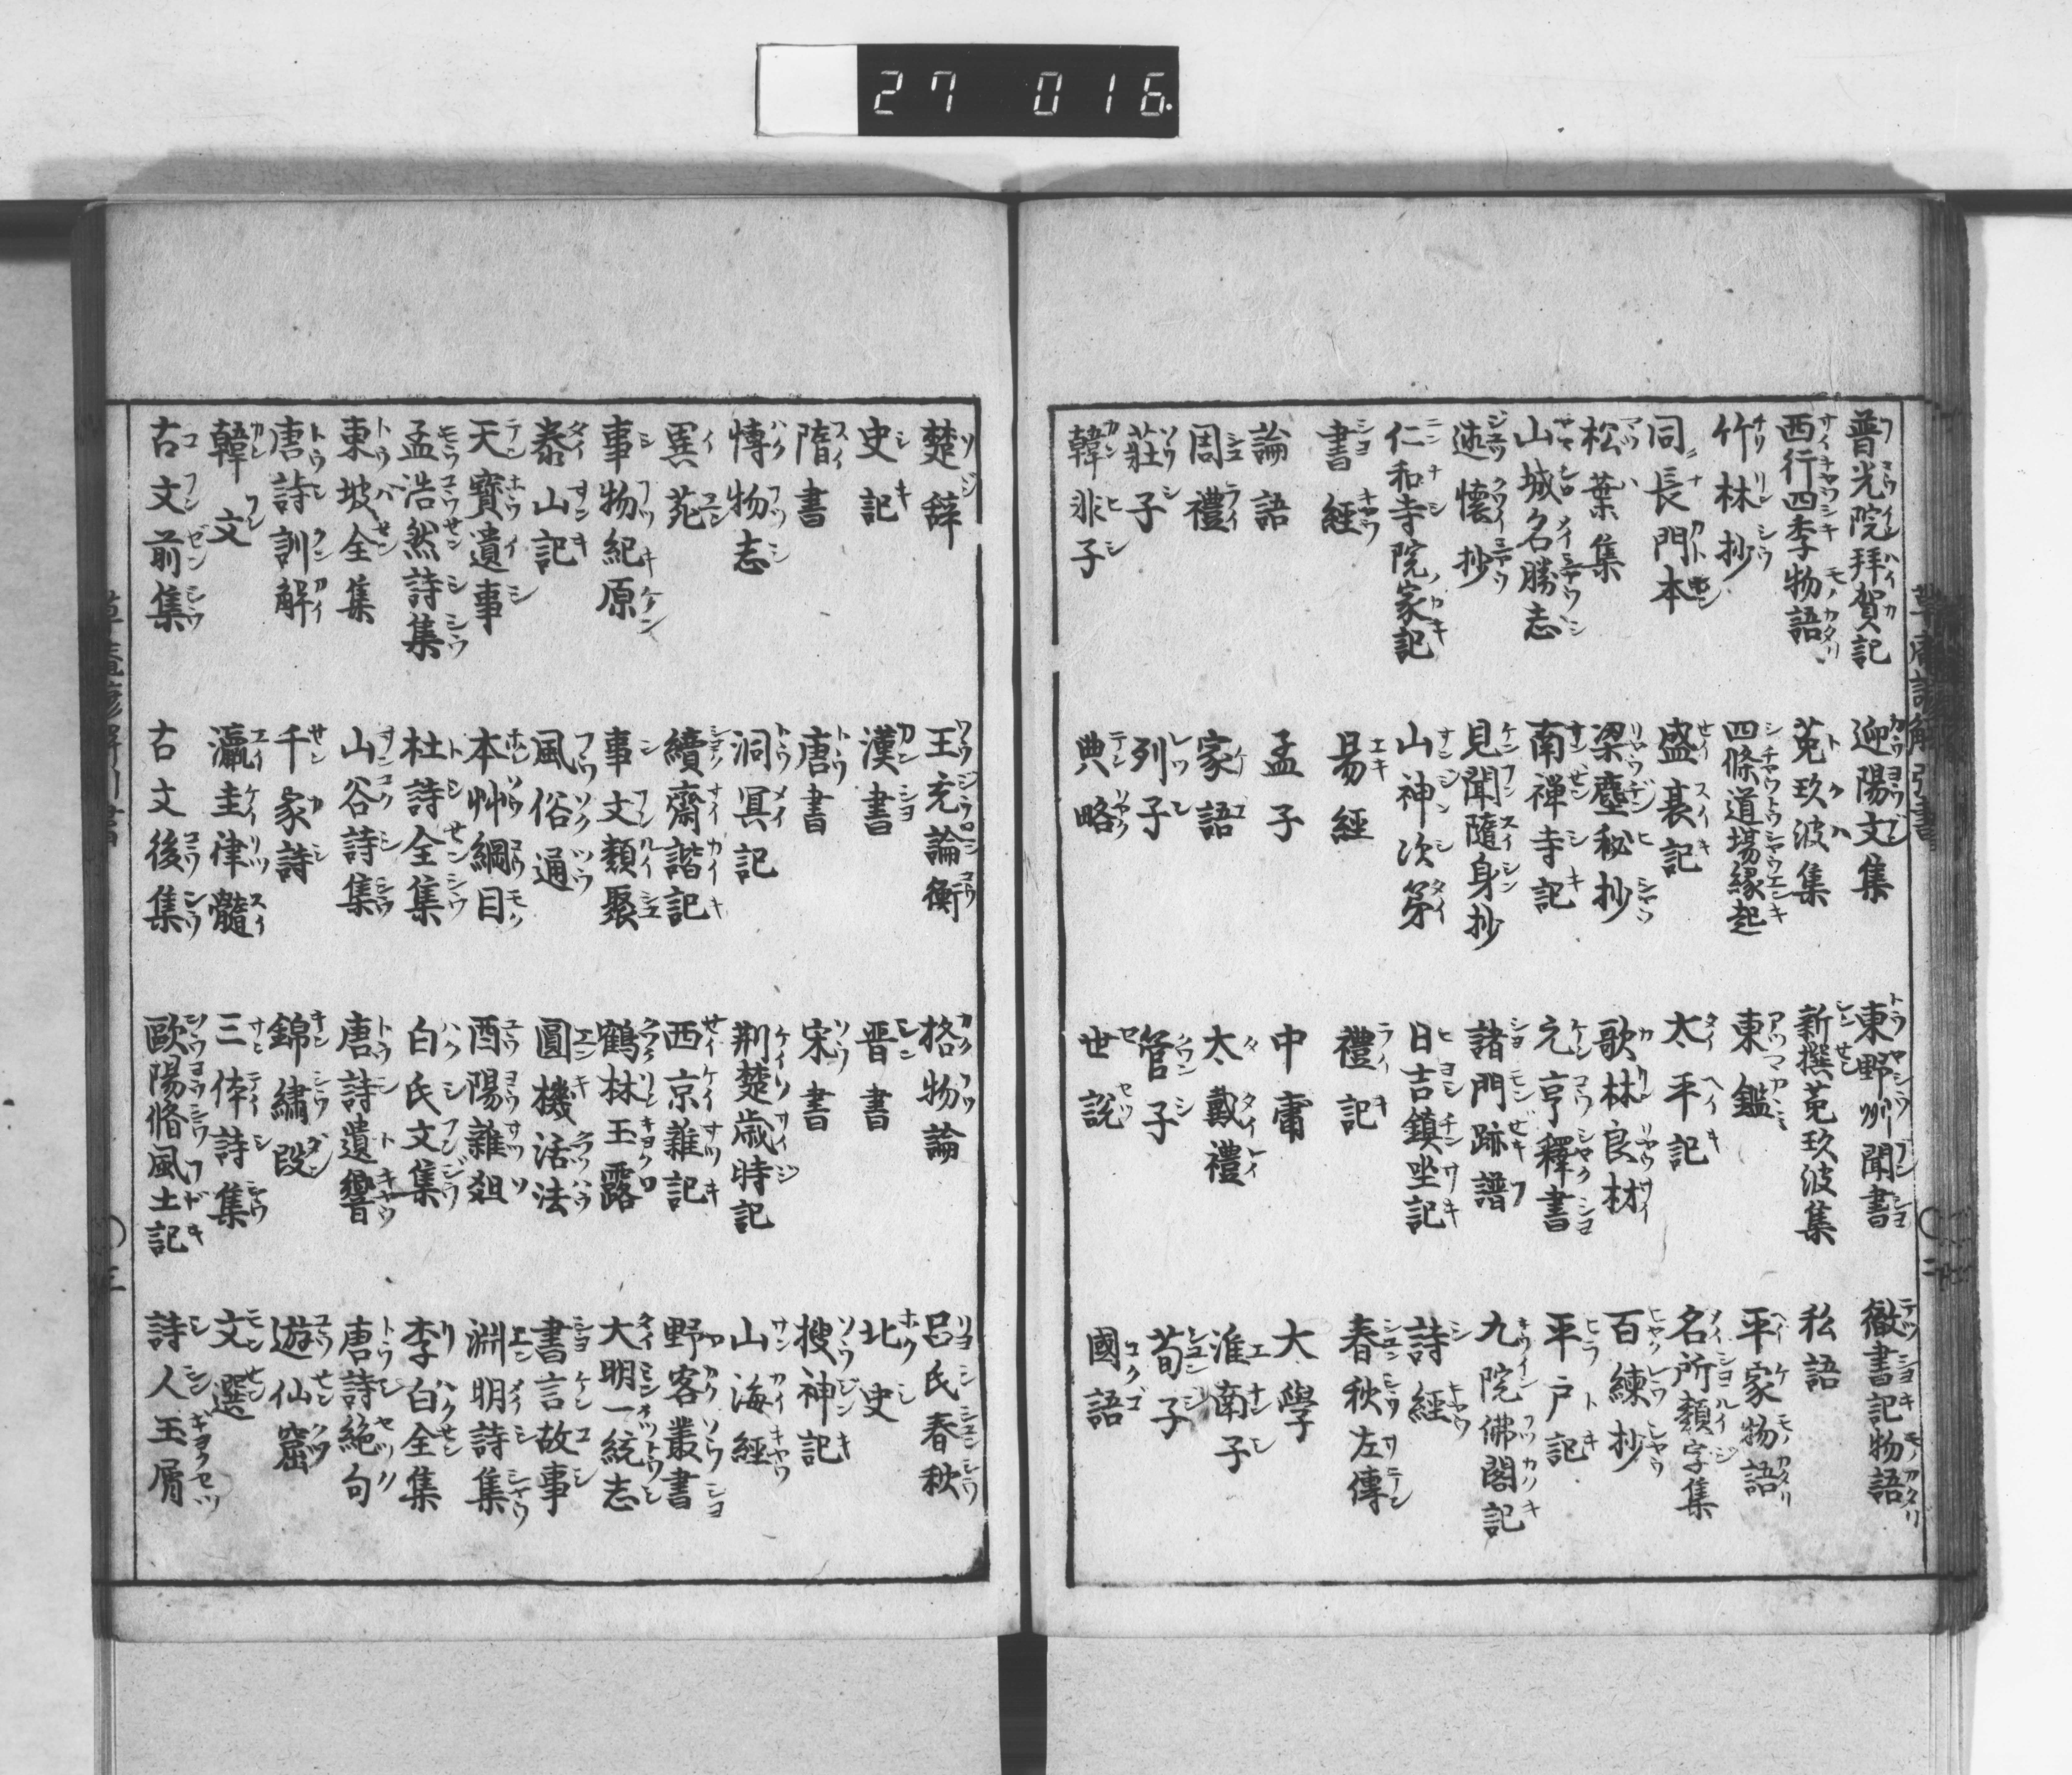 27 016
普光院拜賀記 迎陽文集 東野州聞書 徹書記物語
西行四季物語 菟玖波集 新撰菟玖波集 私語
竹林抄 四條道場縁起 東鑑 平家物語
同長門本 盛衰記 太平記 名所類字集
松葉集 梁塵秘抄 歌林良材 百練抄
山城名勝志 南禅寺記 元亨釋書 平戸記
述懷抄 見聞隨身抄 諸門跡譜 九院佛閣記
仁和寺院家記 山神次第 日吉鎮坐記 詩經
書經 易經 禮記 春秋左傳
論語 孟子 中庸 大學
周禮 家語 大戴禮 淮南子
莊子 列子 管子 荀子
韓非子 典略 世説 國語
楚辞 王充論衡 格物論 呂氏春秋
史記 漢書 晋書 北史
隋書 唐書 宋書 搜神記
博物志 洞冥記 荊楚歳時記 山海經
異苑 續齋諧記 西京雜記 野客叢書
事物紀原 事文類聚 鶴林玉露 大明一統志
泰山記 風俗通 圓機活法 書言故事
天寳遺事 本艸綱目 酉陽雜俎 淵明詩集
孟浩然詩集 杜詩全集 白氏文集 李白全集
東坡全集 山谷詩集 唐詩遺響 唐詩絶句
唐詩訓解 千家詩 錦繡段 遊仙窟
韓文 瀛奎律髓 三体詩集 文選
古文前集 古文後集 歐陽脩風土記 詩人玉屑
三